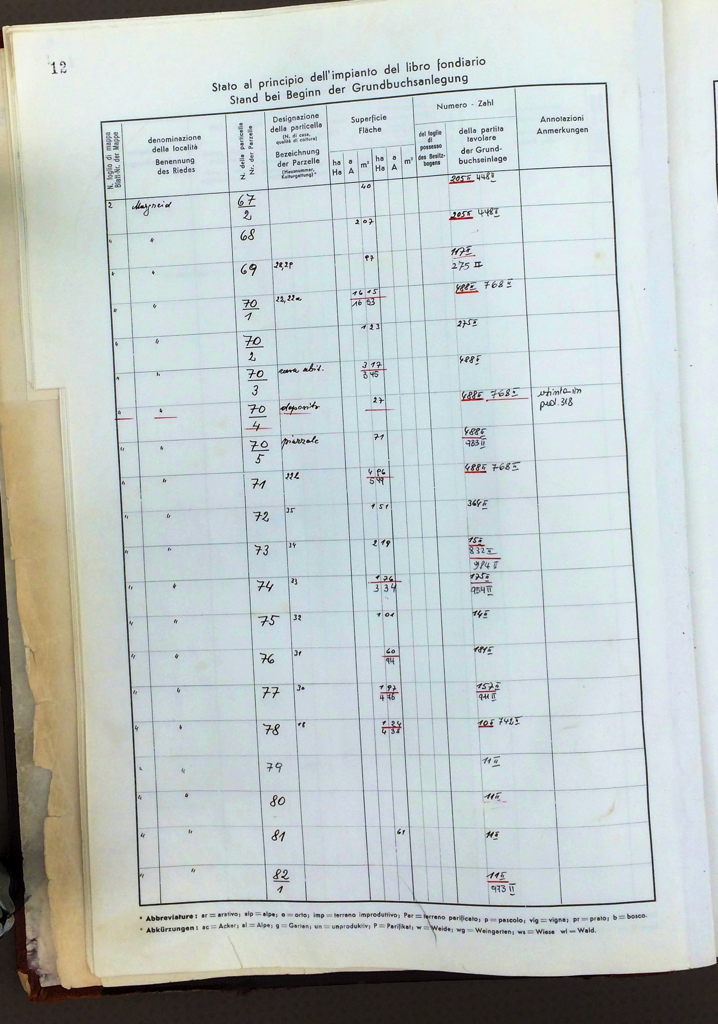 12
Stato al principio dell'impianto del libro fondiario
Stand bei Beginn der Grundbuchsanlegung
N. foglio di mappa
Blatt-Nr. der Mappe
denominazione
della località
Benennung
des Riedes
N. della particella
Nr. der Parzelle
Designazione
della particella
(N. di casa,
qualità di coltura)
Bezeichnung
der Parzelle
(Hausnummer,
Kulturgattung)*
Superficie
Fläche
ha Ha a A m² ha Ha a A m²
Numero - Zahl
del foglio
di
possesso
des Besitz-
bogens
della partita
tavolare
der Grund-
buchseinlage
Annotazioni
Anmerkungen
2 67/2 40 205II 448II
" " 68 2 07 205II 448II
" " 69 28,29 97 117II
275 II
" " 70/1 22,22a 16 15 488II 768II
16 53
" " 70/2 1 23 275II
" " 70/3 casa abit. 3 17 488II
3 45
" " 70/4 deposito 27 488II 768II in p.ed. 318
" " 70/5 piazzale 71 488II
933 II
" " 71 22b 4 96 488II 768II
5 49
" " 72 35 1 51 364II
" " 73 34 2 19 15II
832II
984 II
" " 74 33 1 76 175II
3 34 954II
" " 75 32 1 01 14II
" " 76 31 60 181II
94
" " 77 30 1 97 157II
4 76 911II
" " 78 18 1 24 10II 742II
4 34
" " 79 11 II
" " 80 11II
" " 81 61 11II
" " 82/1 11II
973 II
* Abbreviature: ar = arativo; alp = alpe; o = orto; imp = terreno improduttivo; Par = terreno parificato; p = pascolo; vig = vigna; pr = prato; b = bosco.
* Abkürzungen: ac = Acker; al = Alpe; g = Garten; un = unproduktiv; P = Parifikat; w = Weide; wg = Weingarten; ws = Wiese wl = Wald.